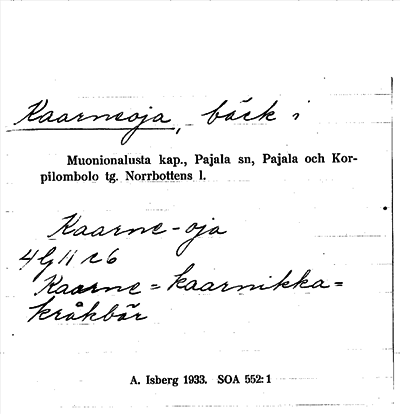 Kaarneoja, bäck i
Muonionalusta kap., Pajala sn, Pajala och Kor-
pilombolo tg. Norrbottens l.
Kaarne-oja
Kaarne = kaarnikka =
kråkbär
A. Isberg 1933. SOA 552:1